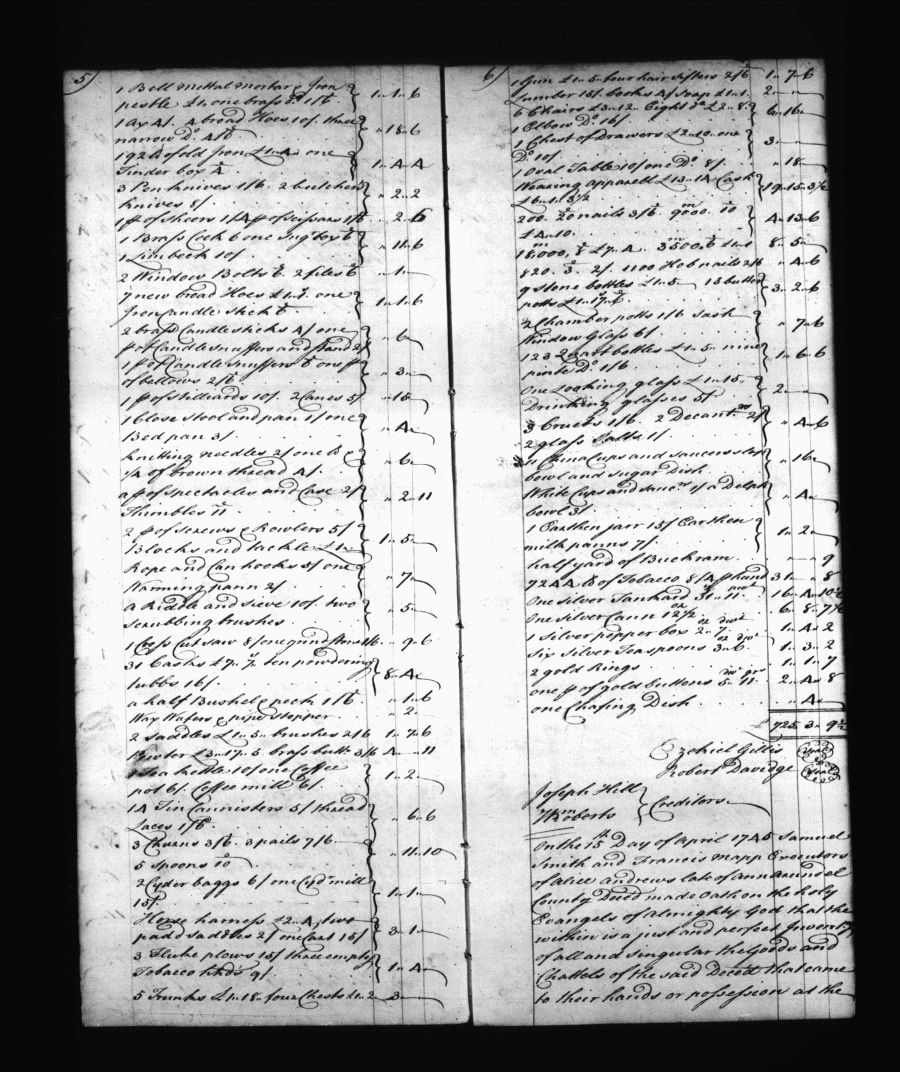 5/
1 Bell mettal mortar & Iron
pestle £1.. one brass Do 1/6 1..1..6
1 Ax 4/. 4 broad Hoes 10/. three
narrow Do 4/6 ..18..6
192 lb of old Iron one
Tinder box 1..4..4
3 Pen knives 1/6. 2 butchers
knives 8/. ..2..2
1 pr of sheers 1/ pr of scissars ..2..6
1 Brass Cock 6 one
1 Limbeck 10/. ..11..6
2 Window Bolts 2 files ..1..
7 new broad Hoes £1..1. one
Iron Candle stick 1..1..6
2 brass Candlesticks 4/ one
pr of Candle Snuffers and Stand 2/ ..6..
1 pr of Candle Snuffers one pr
of bellows 2/6 ..3..
1 pr of stilliards 10/. 2 Canes 5/ ..15..
1 Close stool and pan 1/ one
Bed pan 3/. ..4..
Knitting needles 2/ one lb &
1/4 of brown thread 4/. ..6..
a pr of Spectacles and Case 2/
Thimbles 11 ..2..11
2 pr of screws & Rowlers 5/
Blocks and tackle £1.. 1..5..
Rope and Can hooks 5/ one
Warming pann 2/ ..7..
a Riddle and sieve 10/. two
scrubbing brushes ..5..
1 Cross Cut saw 8/ one grind stone 1/6 ..9..6
31 Casks £7..7. ten powdering
tubbs 16/. 8..4..
a half Bushel & peck 1/6 ..1..6
Wax Wafers & pipe stopper ..2..
2 saddles £1..5.. brushes 2/6 1..7..6
Pewter £3..17..5 brass butt 3/6 4....11
1 Tea kettle 10/ one Coffee
pot 6/. Coffee mill 6/. 1..2..
14 Tin Cannisters 5/ thread
Laces 1/6 ..6..6
3 Churns 3/6. 3 pails 7/6
5 Spoons 10 ..11..10
2 Cyder baggs 6/ one Cydr mill
15/. 1..1..
Horse harness £2..4. two
padd saddles 2/ one Cart 15/ 3..1..
3 Fluke plows 15/ three empty
Tobacco hhds 9/. 1..4..
5 Trunks £1..18. four Chests £1..2 3....
6/
1 Gun £1..5.. four hair sifters 2/6 1..7..6
Lumber 15/. books 4/ Soap £1..1. 2....
6 Chairs £3..12.. Eight Do £2..8.
1 Elbow Do 16/. 6..16..
1 Chest of drawers £2..10.. one
Do 10/. 3....
1 Oval Table 10/ one Do 8/. ..18..
Wearing apparell £13..14 Cash
£6..1..3 1/2 19..15..3 1/2
200. 20 nails 3/6 9000. 10
£4..10. 4..13..6
18,000, 8 £7..4. 3500, 6 £1..1 8..5..
820. 3. 2/. 1100 Hob nails 2/6 ..4..6
9 stone bottles £1..5 15 butter
potts 3..2..6
2 Chamber potts 1/6 Sash
Window Glass 6/. ..7..6
123 Quart bottles £1..5.. nine
pinte Do 1/6 1..6..6
One Looking glass £1..15.
Drinking glasses 5/. 2....
3 Cruets 1/6. 2 Decantrs 2/
2 glass Salts 1/ ..4..6
11 China Cups and saucers slop
bowl and Sugar Dish ..16..
White Cups and saucrs 1/ a Delph
bowl 3/. ..4..
1 Earthen jarr 15/ Earthen
milk panns 7/. 1..2..
half yard of Buckram ....9
7244 lb of Tobacco 8/4 pr hund 31....8
One Silver Tankard 31..11. 16..4..10 1/2
One Silver Cann 12 1/2 oz 6..8..7 1/2
1 silver pepper box 2..7. oz dwt 1..4..2
Six Silver Teaspoons 3..6. oz dwt 1..3..2
2 gold Rings 1..1..7
one pr of gold buttons 5..11. dwt grs 2..4..8
one Chafing Dish ..4..
£725..3..9 1/2
Ezekiel Gillis (Seal)
Robert Davidge (Seal)
Joseph Hill
Wm Roberts } Creditors
On the 15th Day of April 1745 Samuel
Smith and Francis Mapp Executors
of Alice Andrews late of Ann Arundel
County Deced made Oath on the holy
Evangels of Almighty God that the
within is a just and perfect Inventy
of all and singular the Goods and
Chattels of the said Deced that came
to their hands or possession at the